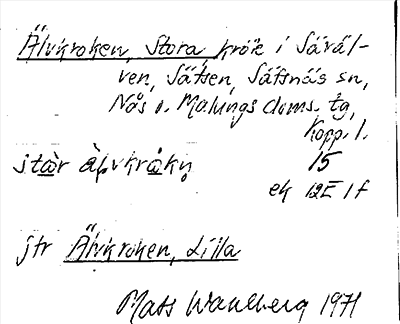 Älvkroken, Stora krök i Säräl-
ven, Sätsen, Sätsnäs sn,
Nås o. Malungs doms. tg,
Kopp. l.
stàr àlvkråkn̥ 15
ek 12E 1f
jfr Älvkroken, Lilla
Mats Wahlberg 1971